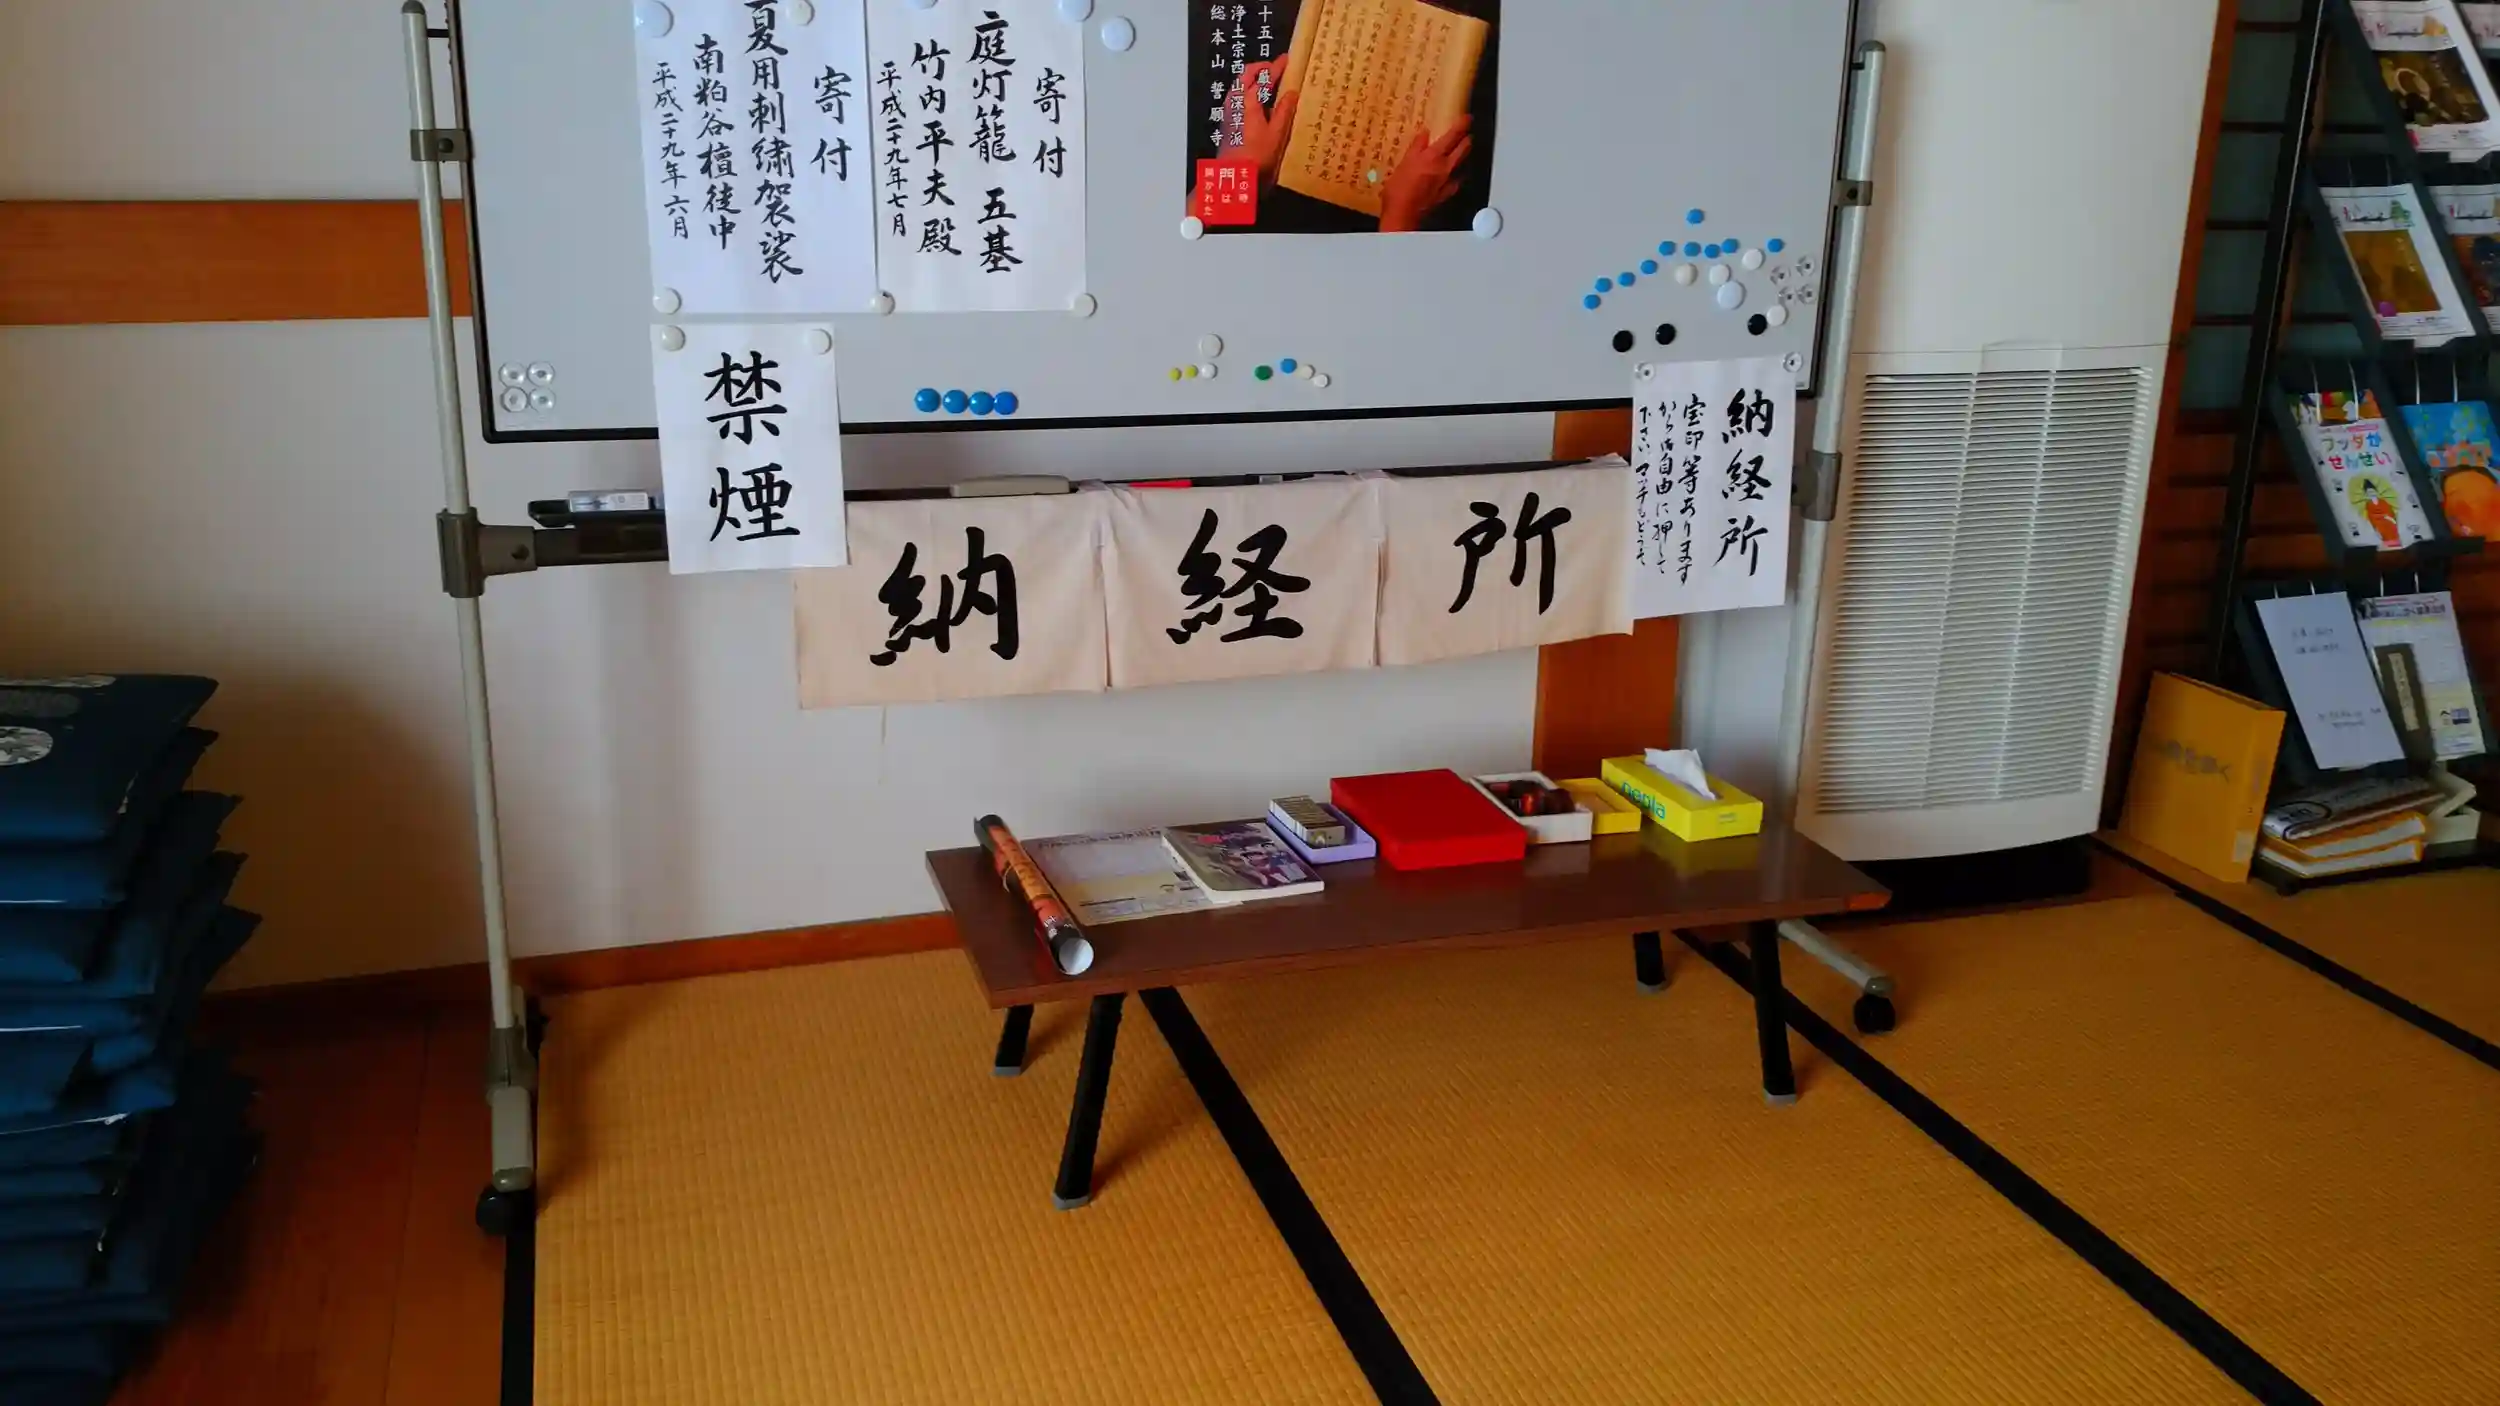 寄付
庭灯籠 五基
竹内平夫殿
平成二十九年七月
寄付
夏用刺繍袈裟
南粕谷檀徒中
平成二十九年六月
十五日 厳修
浄土宗西山深草派
総本山 誓願寺
その時
門は
開かれた
禁煙
納経所
納経所
宝印等あります
から御自由に押して
下さい マッチもどうぞ
nepia
ブッダが
せんせい